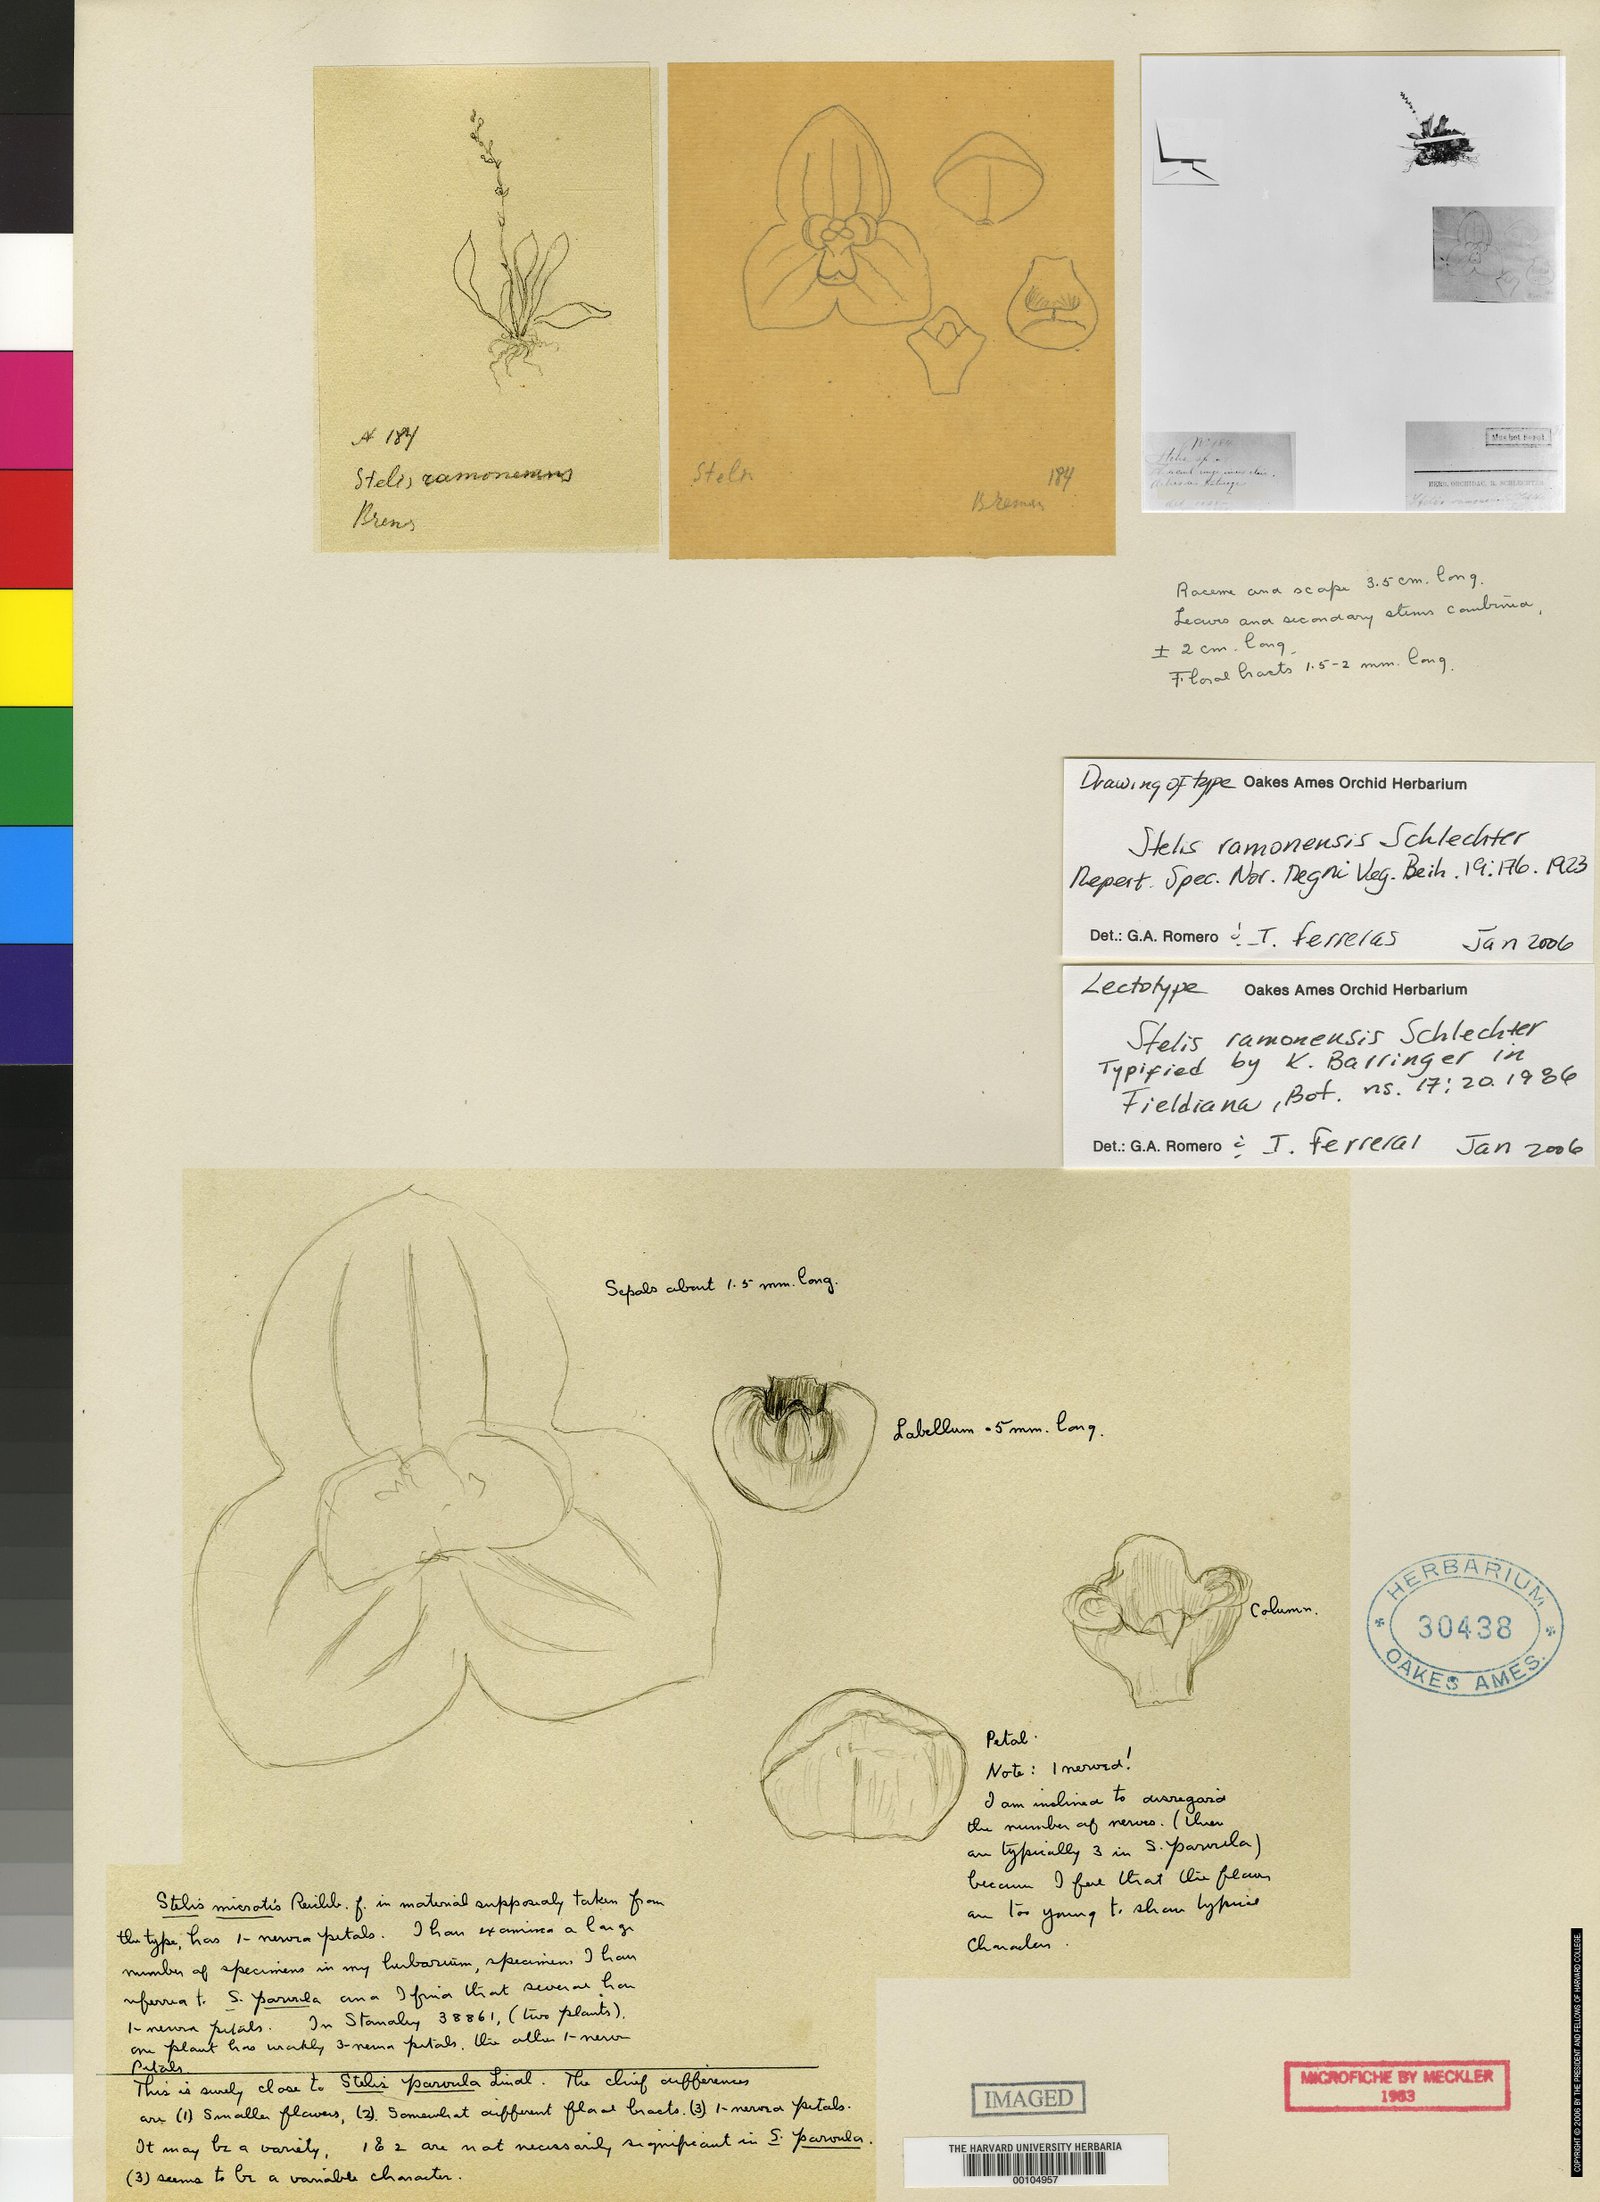 № 184
Stelis ramonensis
Brenes
Stelis
184
Brenes
HERB. ORCHIDAC. R. SCHLECHTER
Raceme and scape 3.5 cm. long.
Leaves and secondary stems combined,
± 2 cm. long.
Floral bracts 1.5-2 mm. long.
Drawing of type Oakes Ames Orchid Herbarium
Stelis ramonensis Schlechter
Repert. Spec. Nov. Regni Veg. Beih. 19: 176. 1923
Det.: G.A. Romero & I. Ferreras Jan 2006
Lectotype Oakes Ames Orchid Herbarium
Stelis ramonensis Schlechter
Typified by K. Barringer in
Fieldiana, Bot. ns. 17: 20. 1986
Det.: G.A. Romero & I. Ferreras Jan 2006
Sepals about 1.5 mm. long.
Labellum .5 mm. long.
Column.
HERBARIUM
30438
OAKES AMES.
Petal.
Note: 1 nerved!
I am inclined to disregard
the number of nerves. (there
are typically 3 in S. parvula)
because I feel that the flowers
are too young to show typical
characters.
Stelis microtis Reichb. f. in material supposedly taken from
the type, has 1-nerved petals. I have examined a large
number of specimens in my herbarium, specimens I have
referred to S. parvula and I find that several have
1-nerved petals. In Standley 38861, (two plants),
one plant has weakly 3-nerved petals, the other 1-nerved
Petals
This is surely close to Stelis parvula Lindl. The chief differences
are (1) Smaller flowers, (2). Somewhat different floral bracts. (3) 1-nerved petals.
It may be a variety, 1 & 2 are not necessarily significant in S. parvula.
(3) seems to be a variable character.
IMAGED
MICROFICHE BY MECKLER
1983
THE HARVARD UNIVERSITY HERBARIA
00104957
COPYRIGHT © 2006 BY THE PRESIDENT AND FELLOWS OF HARVARD COLLEGE.